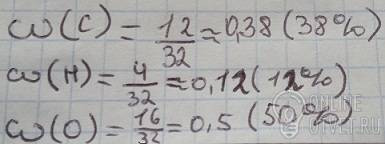 ω(C) = 12/32 ≈ 0,38 (38%)
ω(H) = 4/32 ≈ 0,12 (12%)
ω(O) = 16/32 = 0,5 (50%)
ONLINE
OTVET.RU